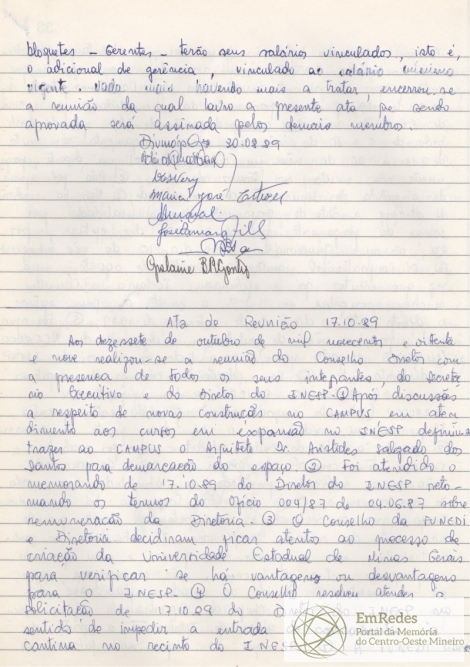 bloquetes - Gerentes - terão seus salários vinculados, isto é,
o adicional de gerência, vinculado ao salário mínimo
vigente. Nada mais havendo mais a tratar, encerrou-se
a reunião da qual lavro a presente ata que sendo
aprovada será assinada pelos demais membros.
30.08.89
Maria José
Ata de Reunião 17.10.89
Aos dezessete de outubro de mil novecentos e oitenta
e nove realizou-se a reunião do Conselho Diretor com
a presença de todos os seus integrantes, do Secretá
rio Executivo e do Diretor do INESP. ① Após discussões
a respeito de novas construções no CAMPUS em aten
dimento aos cursos em expansão no INESP definiu
trazer ao CAMPUS o Arquiteto Dr. Aristides Salgado dos
Santos para demarcação do espaço. ② Foi atendido o
memorando de 17.10.89 do Diretor do INESP reto
mando os termos do ofício 004/87 de 04.06.87 sobre
remuneração da Diretoria. ③ O Conselho da FUNEDI
e Diretoria decidiram ficar atentos ao processo de
criação da Universidade Estadual de Minas Gerais
para verificar se há vantagens ou desvantagens
para o INESP. ④ O Conselho resolveu atender a
solicitação de 17.10.89 do
sentido de impedir a entrada
cantina no recinto do INES
EmRedes
Portal da Memória
do Centro-Oeste Mineiro